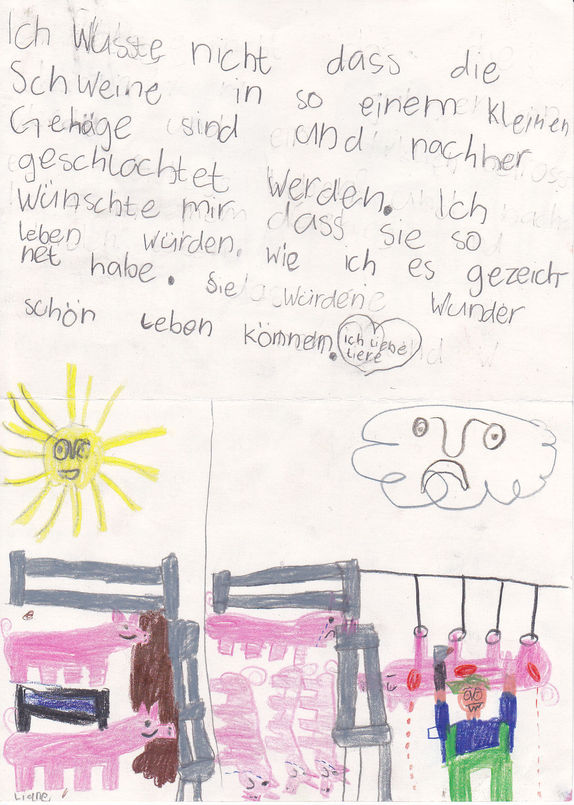 Ich Wusste nicht dass die
Schweine in so einem kleinen
Gehäge sind und nachher
geschlachtet werden. Ich
wünschte mir dass sie so
leben würden. wie ich es gezeich
net habe. Sie würden Wunder
schön Leben können.
ich Liebe
Tiere
Liane